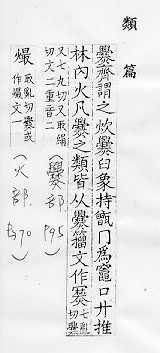 類篇
爨齊謂之炊爨臼象持甑冂為竈口廾推
林内火凡爨之類皆从爨籀文作𤑽七亂切爨
又七丸切又取絹切文二重音二（爨部. P95）
熶取亂切爨或作熶文一（火部. P370）